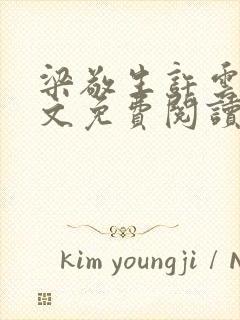 梁敬生許雲
文免費閱讀
kim youngji / N